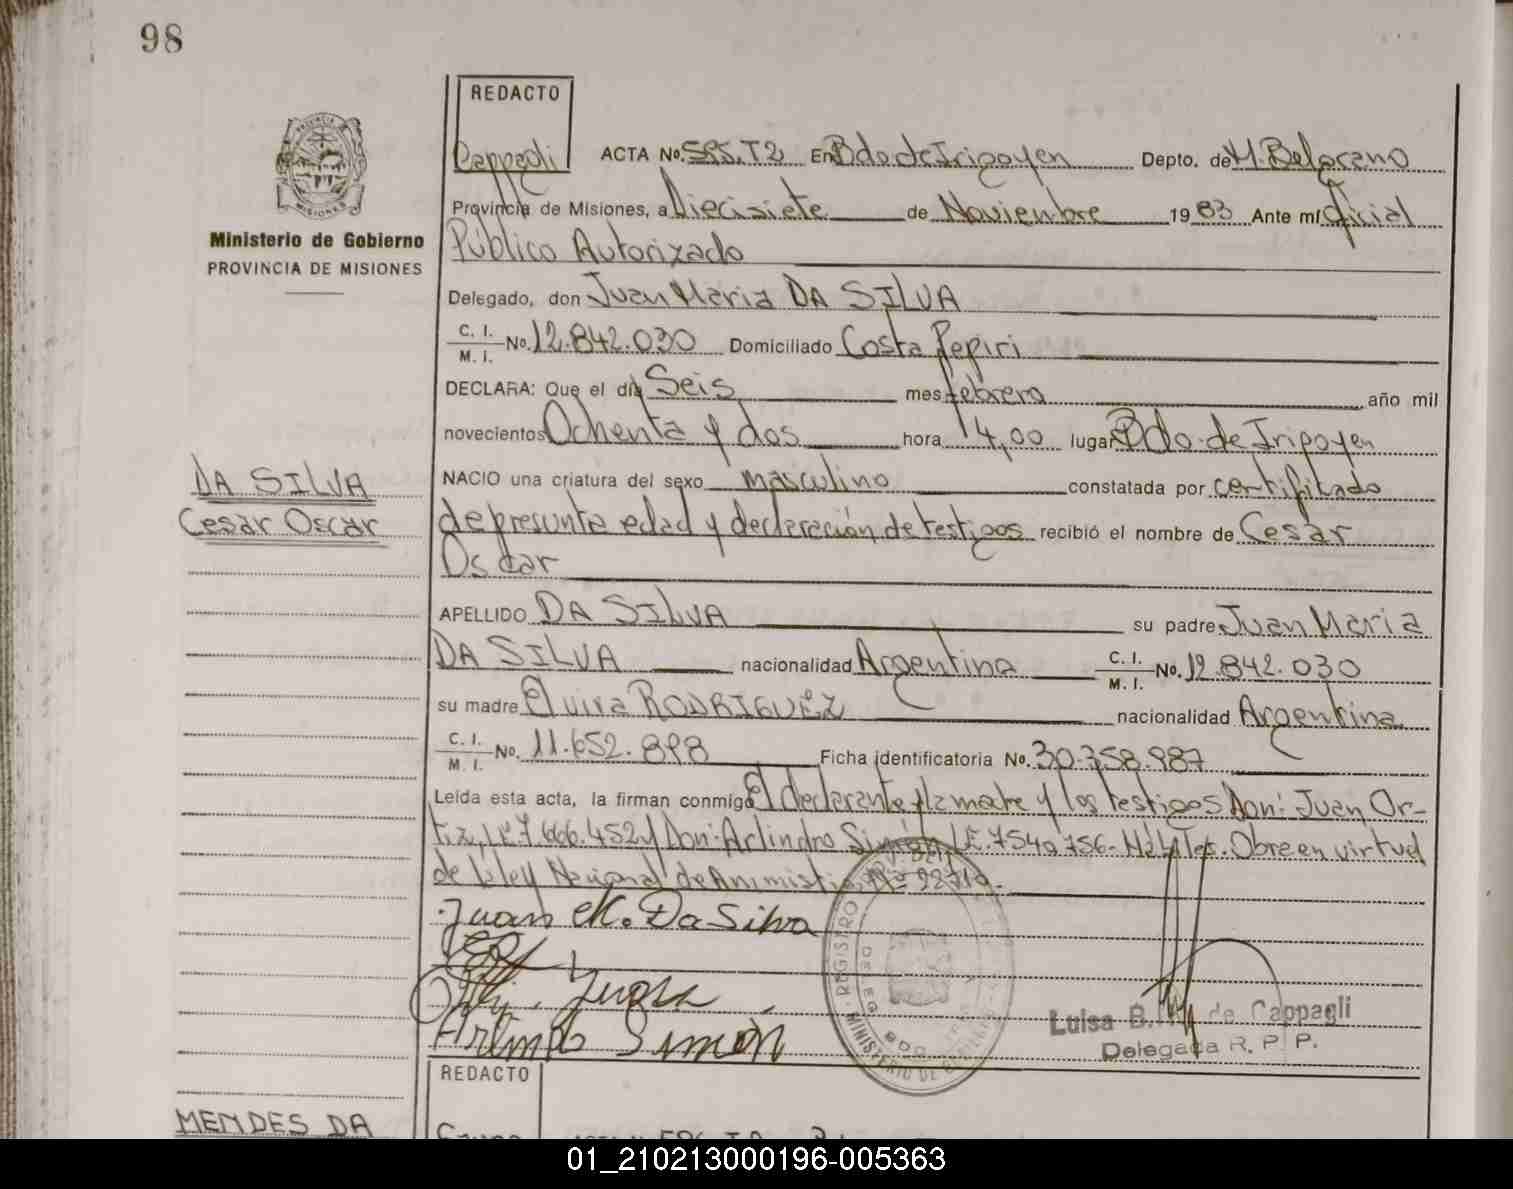 98
REDACTO
Cappagli
ACTA No. 595.T2 En Bdo de Irigoyen Depto. de M. Belgrano
Provincia de Misiones, a Diecisiete de Noviembre 1983 Ante mí Oficial
Público Autorizado
Ministerio de Gobierno
PROVINCIA DE MISIONES
Delegado, don Juan Maria DA SILVA
C. I.
M. I. No. 12.842.030 Domiciliado Costa Pepiri
DECLARA: Que el día Seis mes febrero año mil
novecientos Ochenta y dos hora 14,00 lugar Bdo. de Irigoyen
DA SILVA
Cesar Oscar
NACIO una criatura del sexo masculino constatada por certificado
de presunta edad y declaración de testigos recibió el nombre de Cesar
Oscar
APELLIDO DA SILVA su padre Juan Maria
DA SILVA nacionalidad Argentina C. I.
M. I. No. 12.842.030
su madre Elvira RODRIGUEZ nacionalidad Argentina
C. I.
M. I. No. 11.652.898 Ficha identificatoria No. 30.758.987
Leída esta acta, la firman conmigo El declarante y la madre y los testigos Don: Juan Or-
tiz, LE.7.666.452 y Don: Arlindro Simón LE.7540756- Obre en virtud
de la ley Nacional de Amnistia Nº
Juan M. Da Silva
Arlindo Simón
REGISTRO
MINISTERIO DE
Luisa B. de Cappagli
Delegada R. P. P.
REDACTO
MENDES DA
01_210213000196-005363